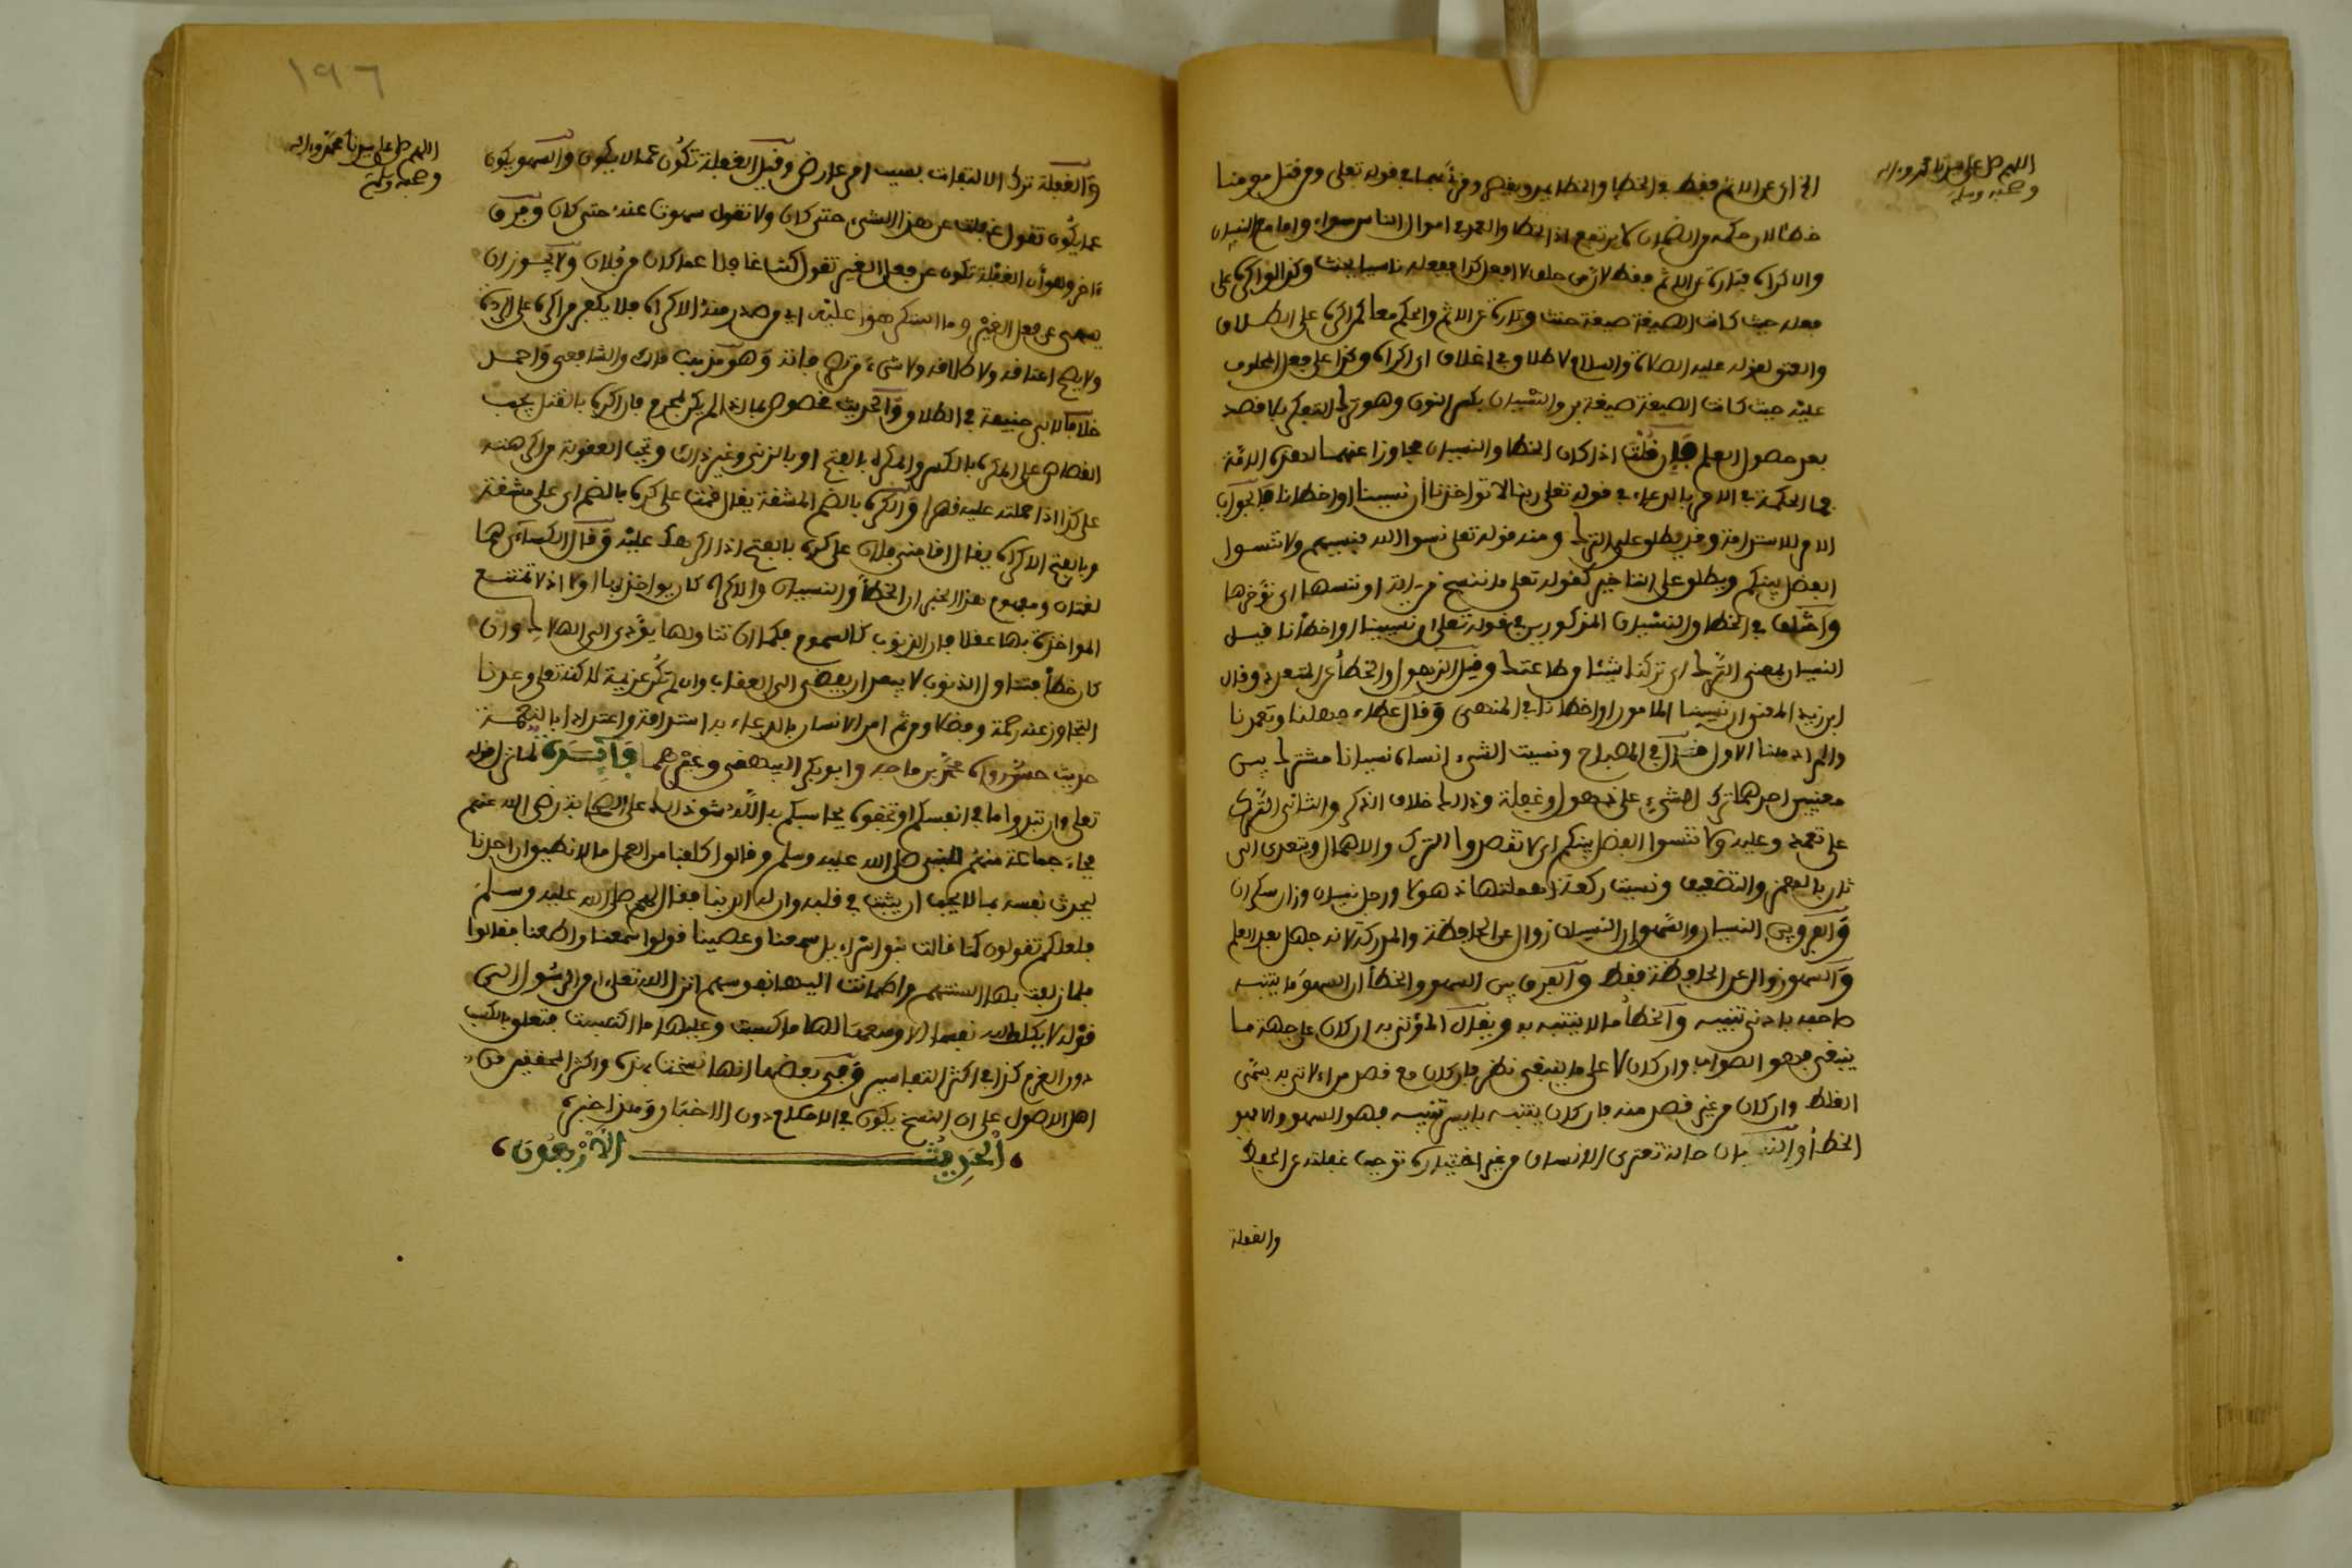 اللهم صل على سيدنا محمد وءاله
وصحبه وسلم
الخ اي عن الاثم فقط في الخطا والخطا يمد ويقصر وقرئ بهما في قوله تعلى ومن قتل مومنا
خطئا لان حكمه من الضمان لا يرتفع اذ الخطا والعمد في اموال الناس سواء واما مع النسيان
والاكراه فتارة عن الاثم فقط لان من حلف لا افعل كذا ففعله ناسيا يحنث وكذا لو اكره على
فعله حيث كانت الصيغة صيغة حنث وتارة عن الاثم والحكم معا كمن اكره على الطلاق
والعتق لقوله عليه الصلاة والسلام لا طلاق في اغلاق اي اكراه وكذا على فعل المحلوف
عليه حيث كانت الصيغة صيغة بر والنسيان بكسر النون وهو ترك التفكر بلا قصد
بعد حصول العلم فإن قلت اذا كان الخطا والنسيان مجاوزا عنهما لهذه الامة
فما الحكمة في الامر بالدعاء في قوله تعلى ربنا لا تواخذنا ان نسينا او اخطانا فالجواب
الامر للاستدامة وقد يطلق على الترك ومنه قوله تعلى نسوا الله فنسيهم ولا تنسوا
الفضل بينكم ويطلق على التاخير كقوله تعلى ما ننسخ من ءاية او ننسها اي نؤخرها
واختلف في الخطا والنسيان المذكورين في قوله تعلى ان نسينا او اخطأنا فقيل
النسيان بمعنى الترك اي تركنا شيئا من طاعتك وقيل الذهول والخطأ غير المتعمد وقال
ابن زيد المعنى ان نسينا المامور او اخطانا في المنهي وقال عطاء جهلنا وتعمدنا
والمراد هنا الاول قال في المصباح ونسيت الشيء انساه نسيانا مشترك بين
معنيين احدهما ترك الشيء على ذهول وغفلة وذلك خلاف الذكر والثاني الترك
على تعمد وعليه ولا تنسوا الفضل بينكم اي لا تقصدوا الترك والاهمال ويتعدى الى
ثان بالهمز والتضعيف ونسيت ركعة اهملتها ذهولا ورجل نسيان وزان سكران
والفرق بين النسيان والسهو ان النسيان زوال عن الحافظة والمدركة لانه جهل بعد العلم
والسهو زوال عن الحافظة فقط والفرق بين السهو والخطأ ان السهو ما يتنبه
صاحبه بادنى تنبيه والخطأ ما لا يتنبه به ويقال المؤتى به ان كان على جهة ما
ينبغي فهو الصواب وان كان لا على ما ينبغي نظر فان كان مع قصد من الاتي به يسمى
الغلط وان كان من غير قصد منه فان كان يتنبه بايسر تنبيه فهو السهو والا فهو
الخطأ والنسيان حالة تعتري الانسان من غير اختياره توجب غفلته عن الحفظ
والغفلة
١٩٦
اللهم صل على سيدنا محمد وءاله
وصحبه وسلم
والغفلة ترك الالتفات بسبب امر عارض وقيل الغفلة تكون عما لا يكون والسهو يكون
عما يكون تقول غفلت عن هذا الشيء حتى كان ولا تقول سهوت عنه حتى كان وفرق
ءاخر وهو أن الغفلة تكون عن فعل الغير تقول كنت غافلا عما كان من فلان ولا يجوز ان
يسهى عن فعل الغير وما استكرهوا عليه اي من صدر منه الاكراه فلا يكفر من اكره على الردة
ولا يصح اعتاقه ولا طلاقه ولا شيء من تصرفاته وهو مذهب مالك والشافعي واحمد
خلافا لابي حنيفة في الطلاق والحديث مخصوص بما اذا لم يكن لمحرم فان اكره بالقتل يجب
القصاص على المكرِه بالكسر والمكرَه بالفتح او بالزنى وغير ذلك وتجب العقوبة من اكرهته
على كذا اذا حملته عليه قهرا والكره بالضم المشقة يقال قمت على كره بالضم اي على مشقة
وبالفتح الاكراه يقال اقامني فلان على كره بالفتح اذا اكرهك عليه وقال الكسائي هما
لغتان ومفهوم هذا الخبر ان الخطأ والنسيان والاكراه كان يواخذ بها اولا اذ لا تمتنع
المواخذة بها عقلا فان الذنوب كالسموم فكما ان تناولها يؤدي الى الهلاك وان
كان خطأ فتناول الذنوب لا يبعد ان يفضي الى العقاب وان لم تكن عزيمة لكنه تعلى وعدنا
التجاوز عنه رحمة وفضلا ومن ثم امر الانسان بالدعاء به استدامة واعتدادا بالنعمة
حديث حسن رواه محمد بن ماجه وابو بكر البيهقي وغيرهما فائدة لما نزل قوله
تعلى وان تبدوا ما في انفسكم او تخفوه يحاسبكم به الله شق ذلك على الصحابة رضي الله عنهم
فجاء جماعة منهم للنبي صلى الله عليه وسلم وقالوا كلفنا من العمل ما لا نطيق ان احدنا
ليحدث نفسه بما لا يحب ان يثبت في قلبه وان له الدنيا فقال لهم صلى الله عليه وسلم
فلعلكم تقولون كما قالت بنو اسراءيل سمعنا وعصينا قولوا سمعنا واطعنا فقالوا
فلما زلقت بها السنتهم واطمانت اليها نفوسهم انزل الله تعلى ءامن الرسول الى
قوله لا يكلف الله نفسا الا وسعها لها ما كسبت وعليها ما اكتسبت فتعلق بالكسب
دون العزم كذا في اكثر التفاسير وفي بعضها انها نسخت بهذه واكثر المحققين من
اهل الاصول على ان النسخ يكون في الاحكام دون الاخبار وهذا خبر
الحديث الأربعون